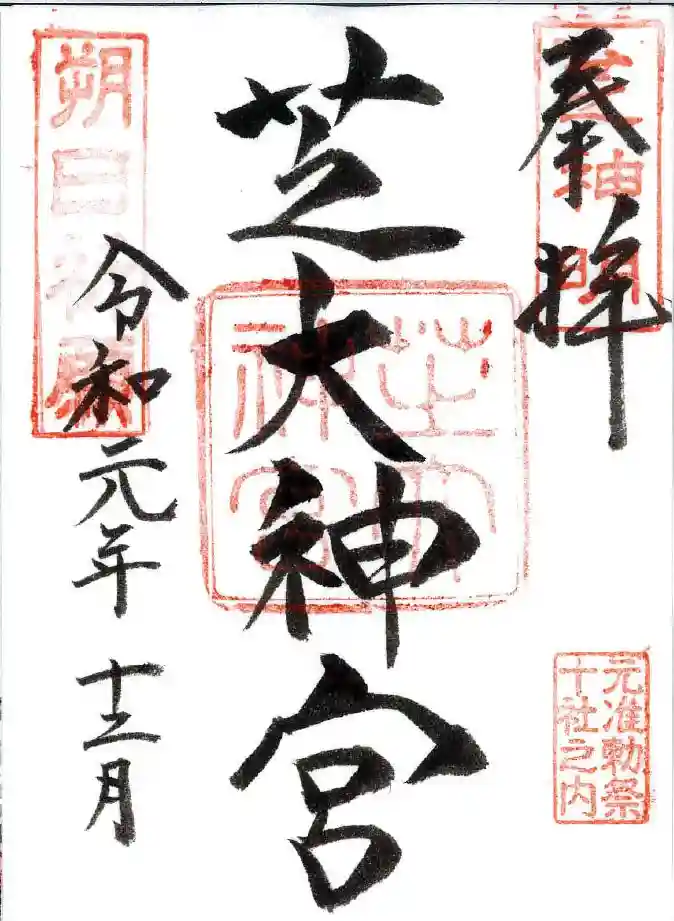 奉拝
芝神明
芝大神宮
芝大神宮
元准勅祭
十社之内
朔日神廩
令和元年十二月